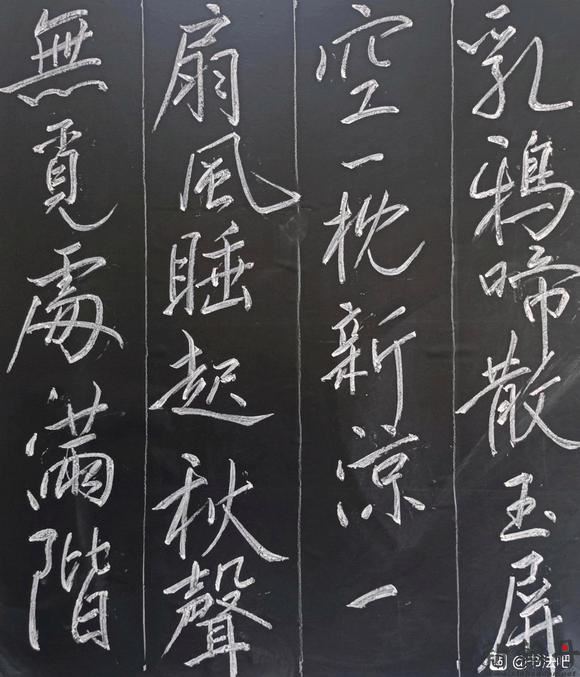 乳鴉啼散玉屏
空一枕新涼一
扇風睡起秋聲
無覓處滿階
@书法吧